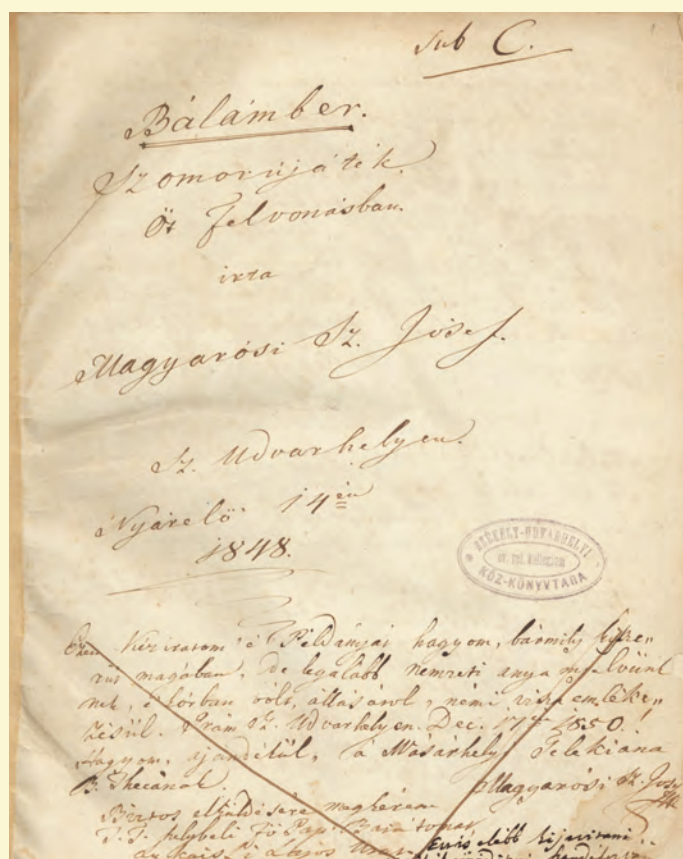 Sub C.
Bálámber.
Szomorújáték.
Öt felvonásban.
irta
Magyarósi Sz. Jósef.
Sz. Udvarhelyen.
Nyárelő 14én
1848.
SZÉKELY-UDVARHELYI
ev. ref. kollégium
KÖZ-KÖNYVTÁRA
Ezen Kéziratom é Példányát hagyom, bármily
magában, de legalább nemzeti anya
nek, é korban volt, állásáról, némi
zésül. Irám Sz. Udvarhelyen. Dec. 17én 1850.
Hagyom, ajándékúl, a Másárhelyi Telekiana
B. Thecának. Magyarósi Sz. Josef
elküldésére megkérem
T. T. helybeli Fő Pap
Lajos Urat. előbb kijavítani